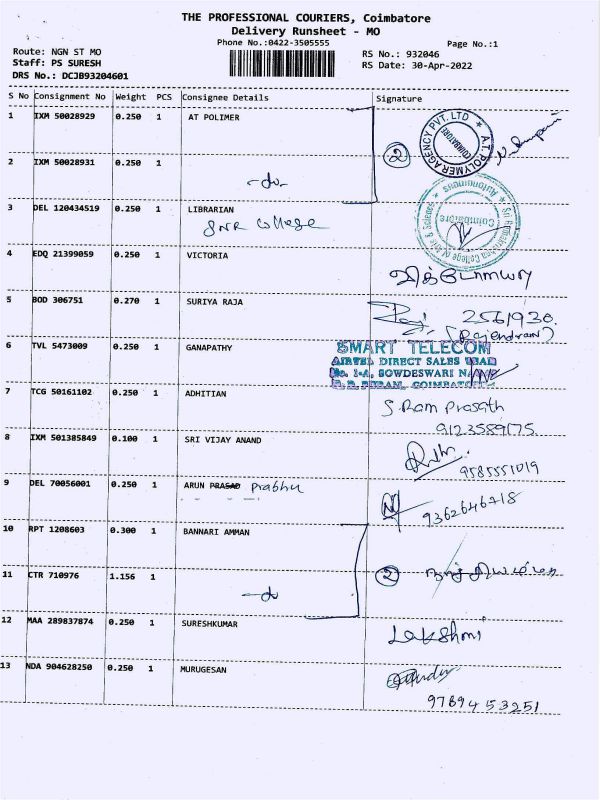 THE PROFESSIONAL COURIERS, Coimbatore
Delivery Runsheet - MO
Phone No.:0422-3505555
Page No.:1
Route: NGN ST MO
RS No.: 932046
Staff: PS SURESH
RS Date: 30-Apr-2022
DRS No.: DCJB93204601
S No Consignment No Weight PCS Consignee Details Signature
1 IXM 50028929 0.250 1 AT POLIMER
A.T. POLYMER AGENCY PVT. LTD
COIMBATORE
2
2 IXM 50028931 0.250 1
-do-
3 DEL 120434519 0.250 1 LIBRARIAN
SNR College
Sri Ramakrishna College of Arts & Science
Autonomous
Coimbatore
4 EDQ 21399059 0.250 1 VICTORIA
5 BOD 306751 0.270 1 SURIYA RAJA
2561930.
(Rajendran)
6 TVL 5473009 0.250 1 GANAPATHY
SMART TELECOM
AIRTEL DIRECT SALES
No. 1-A, GOWDESWARI
R. R. PURAM, COIMBATORE
7 TCG 50161102 0.250 1 ADHITIAN
S. Ram Prasath
9123589175
8 IXM 501385849 0.100 1 SRI VIJAY ANAND
9585551019
9 DEL 70056001 0.250 1 ARUN PRASAD Prabhu
9362646718
10 RPT 1208603 0.300 1 BANNARI AMMAN
11 CTR 710976 1.156 1
2
-do
12 MAA 289837874 0.250 1 SURESHKUMAR
Lakshmi
13 NDA 904628250 0.250 1 MURUGESAN
97894 53251